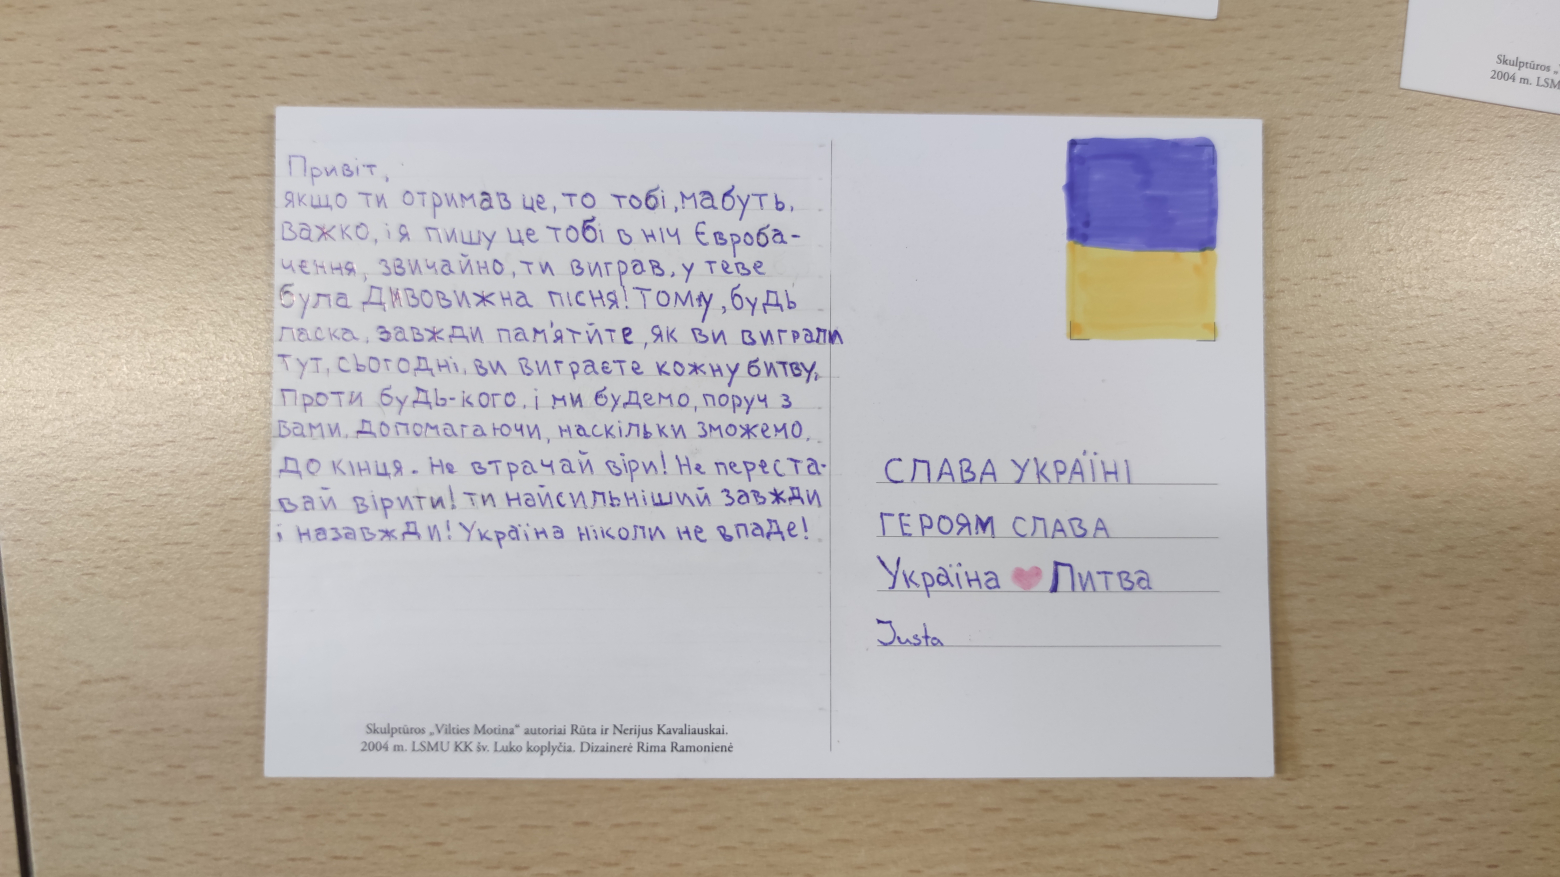 Привіт,
якщо ти отримав це, то тобі, мабуть,
важко, і я пишу це тобі в ніч Євроба-
чення, звичайно, ти виграв, у теве
була дивовижна пісня! Тому, будь
ласка, завжди пам'ятйте, як ви виграли
тут, сьогодні, ви виграєте кожну битву,
проти будь-кого, і ми будемо, поруч з
вами, допомагаючи, наскільки зможемо,
до кінця. Не втрачай віри! Не переста-
вай вірити! ти найсильніший завжди
і назавжди! Україна ніколи не впаде!
СЛАВА УКРАЇНІ
ГЕРОЯМ СЛАВА
Україна ❤ Литва
Justa
Skulptūros „Vilties Motina“ autoriai Rūta ir Nerijus Kavaliauskai.
2004 m. LSMU KK šv. Luko koplyčia. Dizainerė Rima Ramonienė
Skulptūros
2004 m. LSM